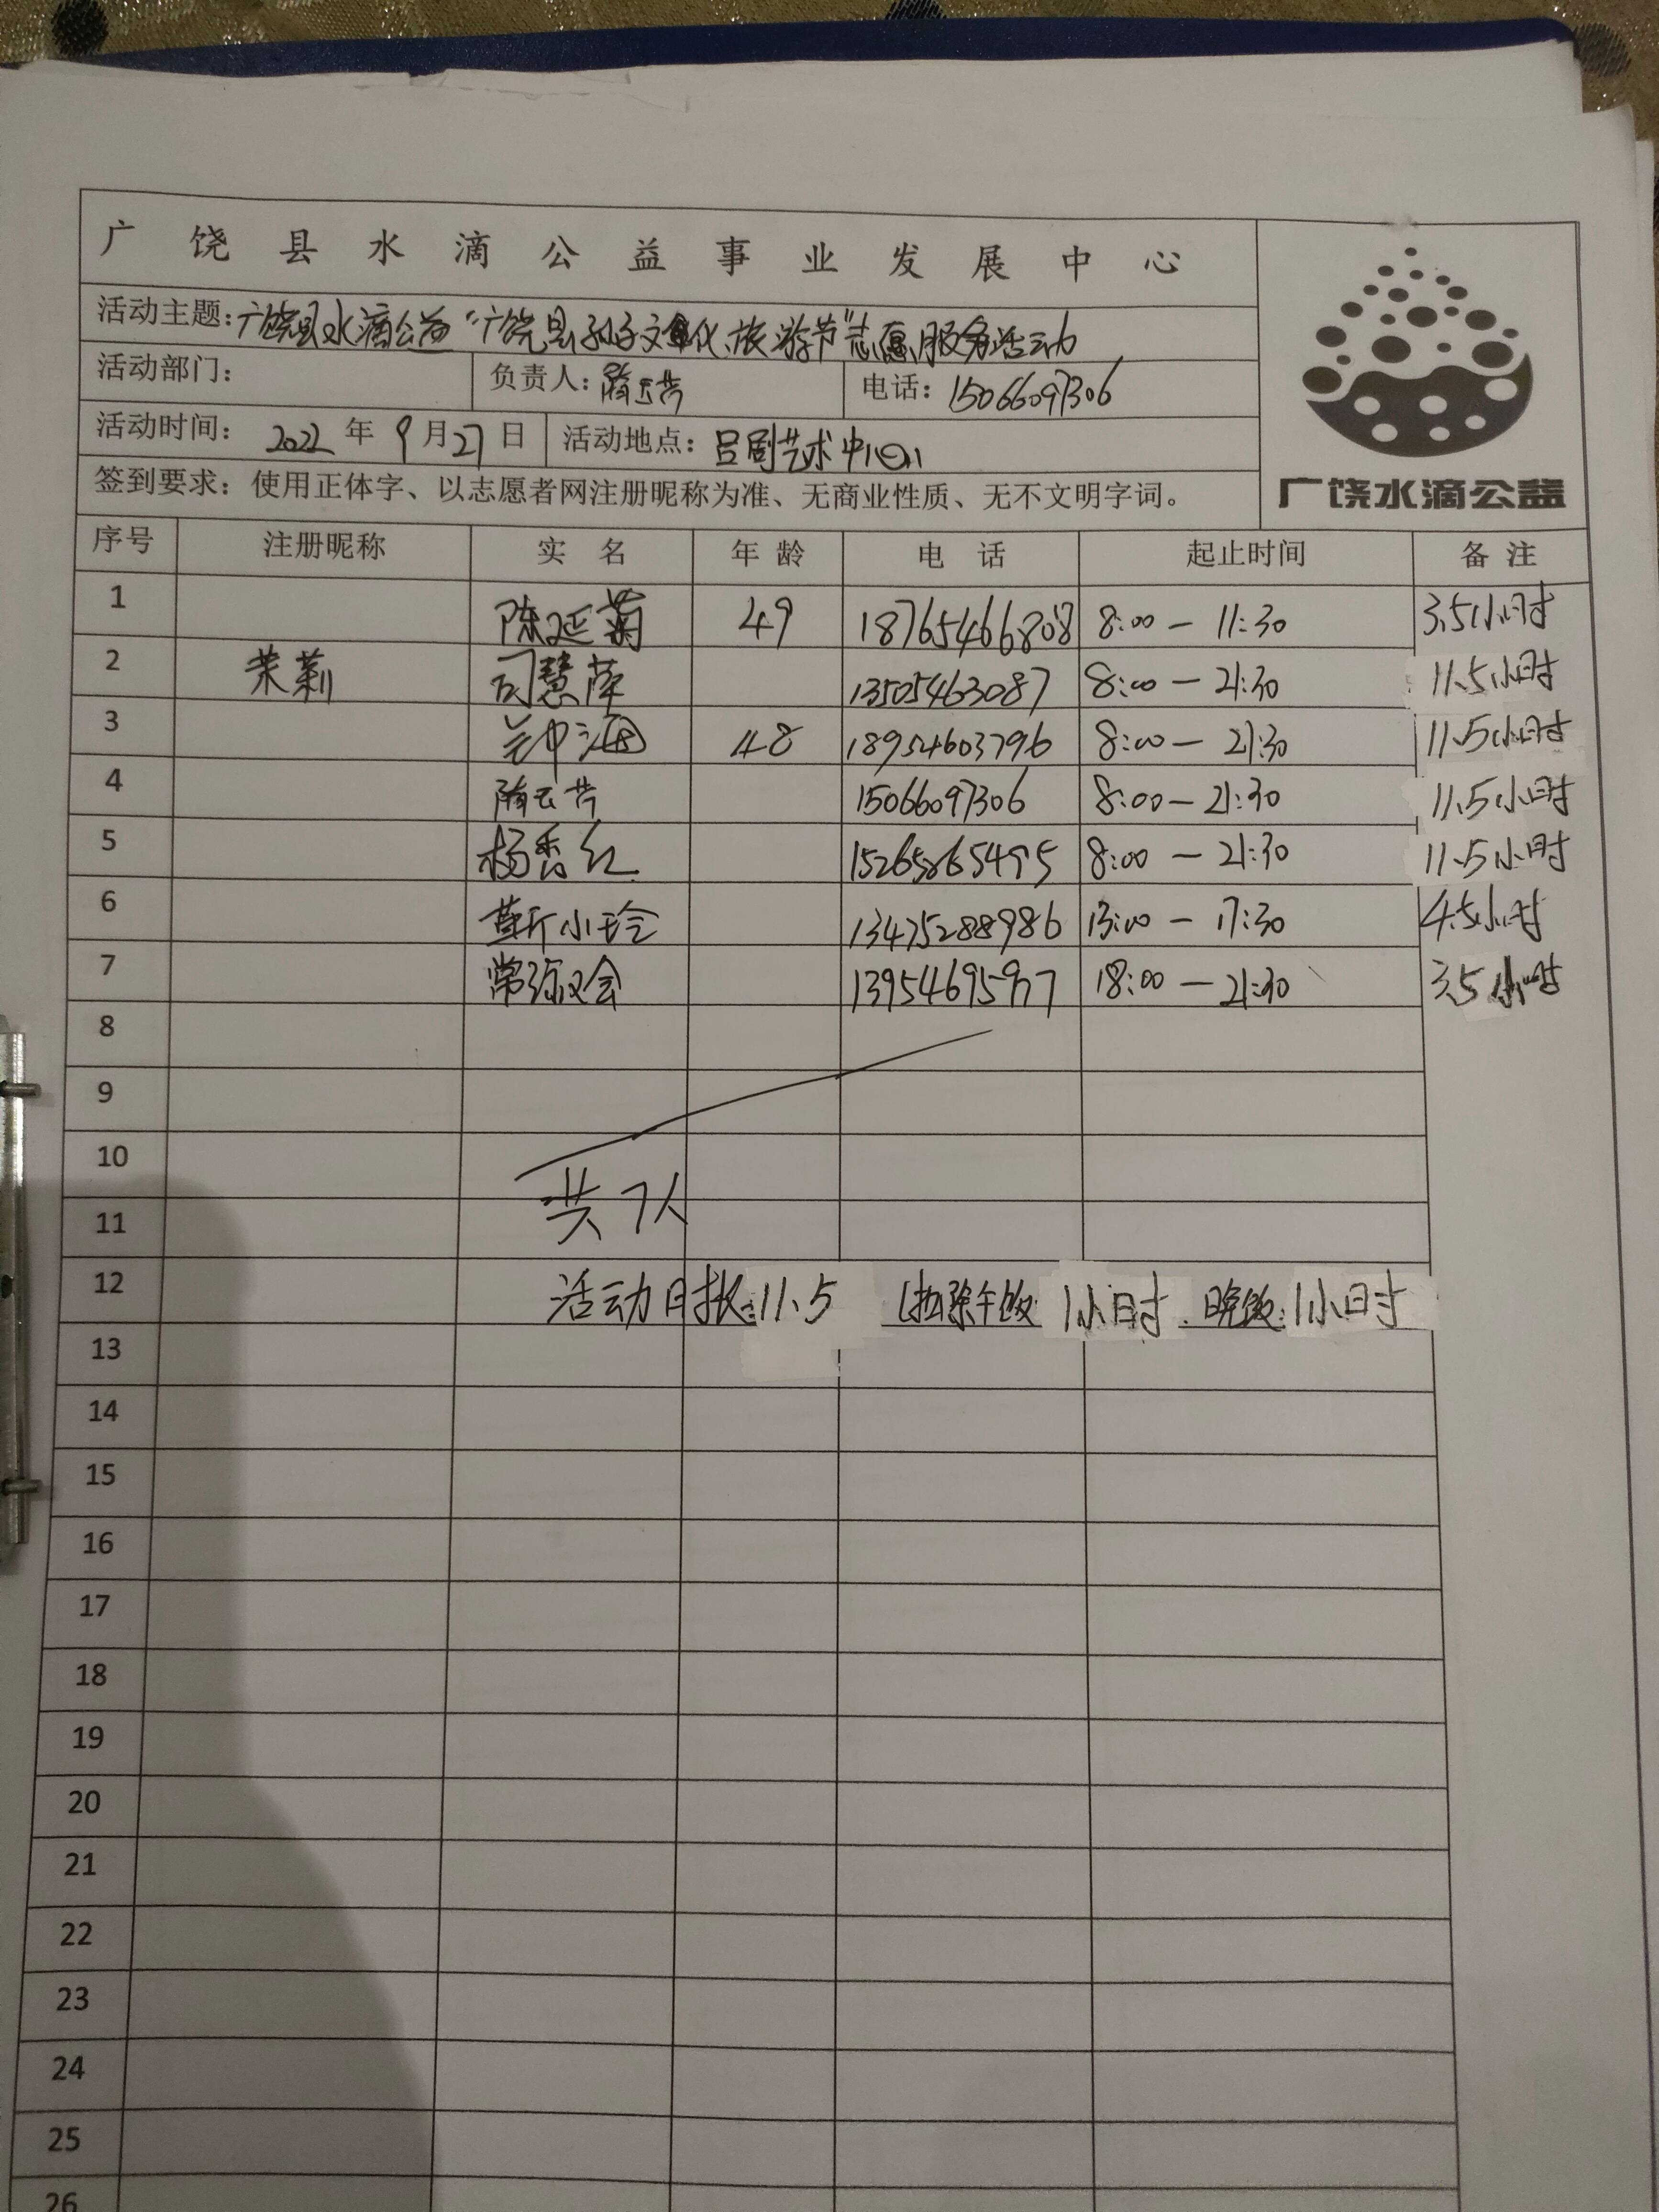 广饶县水滴公益事业发展中心
活动主题：广饶县水滴公益“广饶县孙子文化旅游节”志愿服务活动
活动部门： 负责人：隋云芳 电话：15066097306
活动时间： 2022 年 9 月 27 日 活动地点：吕剧艺术中心
签到要求：使用正体字、以志愿者网注册昵称为准、无商业性质、无不文明字词。
广饶水滴公益
序号 注册昵称 实 名 年 龄 电 话 起止时间 备 注
1 陈延菊 49 18765466808 8:00 — 11:30 3.5小时
2 茉莉 司慧萍 13505463087 8:00 — 21:30 11.5小时
3 48 18954603796 8:00 — 21:30 11.5小时
4 隋云芳 15066097306 8:00 — 21:30 11.5小时
5 杨香红 15265865495 8:00 — 21:30 11.5小时
6 靳小玲 13475288986 13:00 — 17:30 4.5小时
7 常 会 13954695977 18:00 — 21:30 3.5小时
8
9
10
共7人
11
12 活动时长：11.5 （扣除午饭1小时、晚饭：1小时
13
14
15
16
17
18
19
20
21
22
23
24
25
26